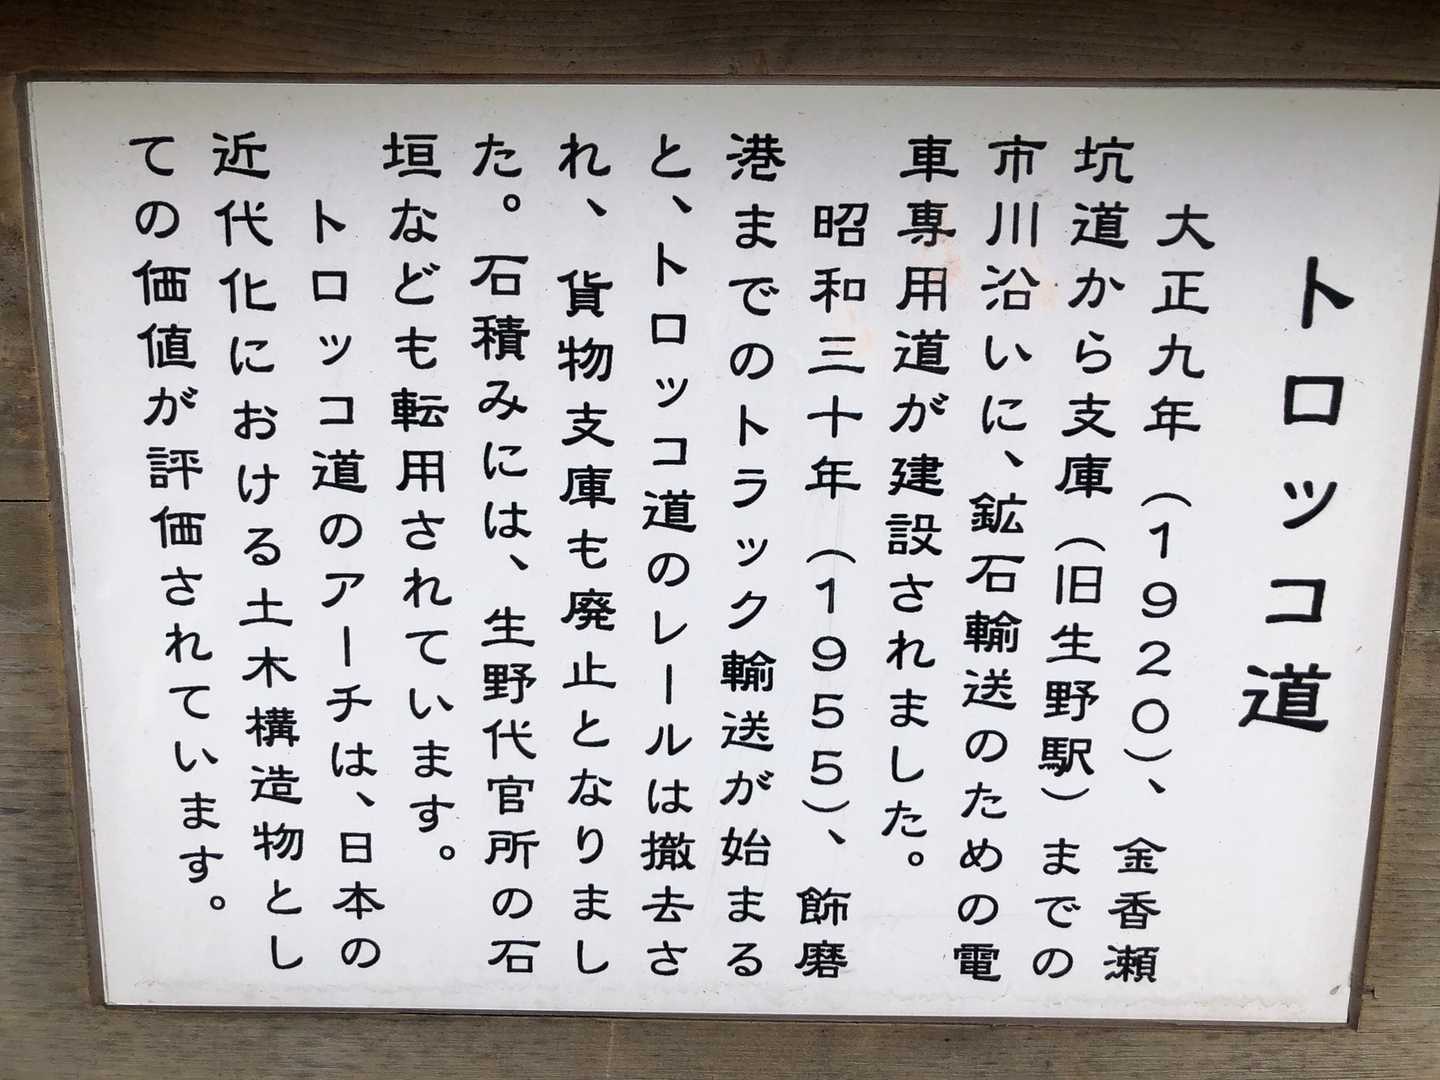 トロッコ道
大正九年（１９２０）、金香瀬
坑道から支庫（旧生野駅）までの
市川沿いに、鉱石輸送のための電
車専用道が建設されました。
昭和三十年（１９５５）、飾磨
港までのトラック輸送が始まる
と、トロッコ道のレールは撤去さ
れ、貨物支庫も廃止となりまし
た。石積みには、生野代官所の石
垣なども転用されています。
トロッコ道のアーチは、日本の
近代化における土木構造物とし
ての価値が評価されています。